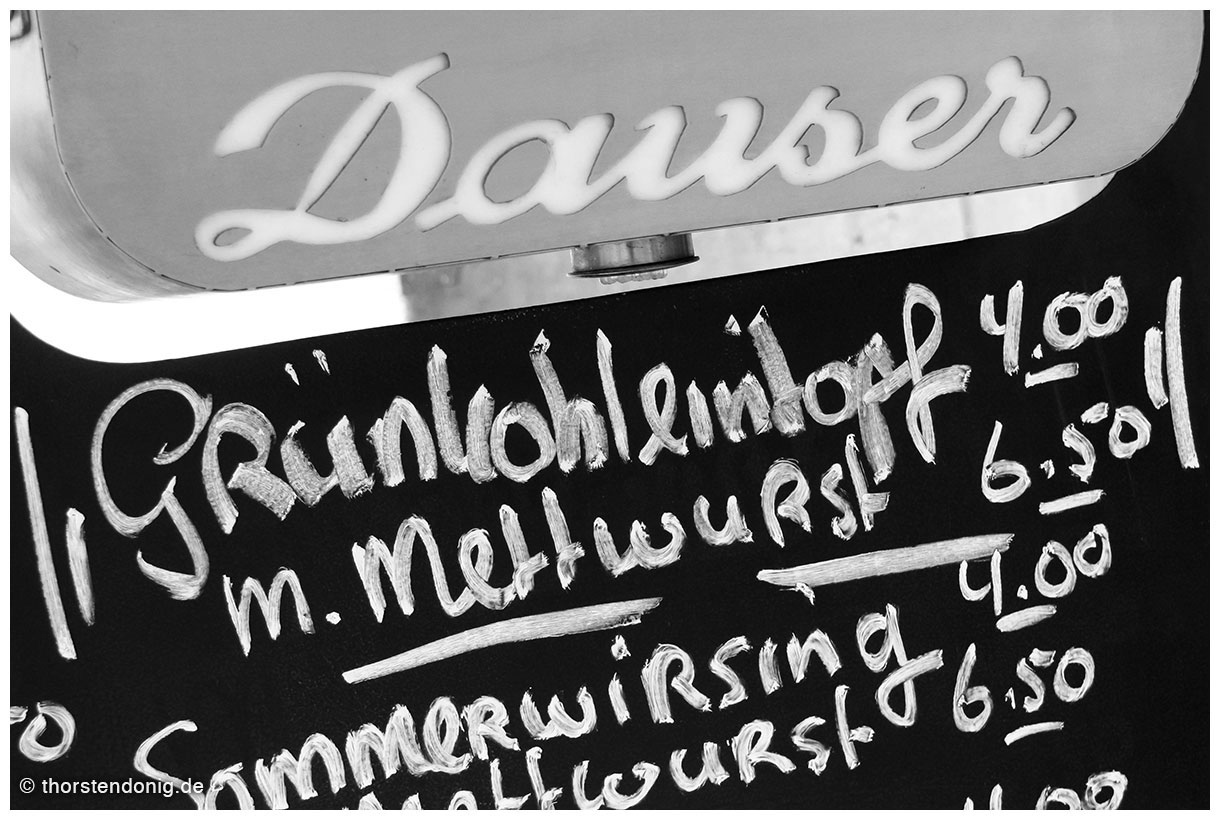 Dauser
Grünkohleintopf 4.00
m. Mettwurst 6.50
Sommerwirsing 4.00
Mettwurst 6.50
4.00
50
© thorstendonig.de